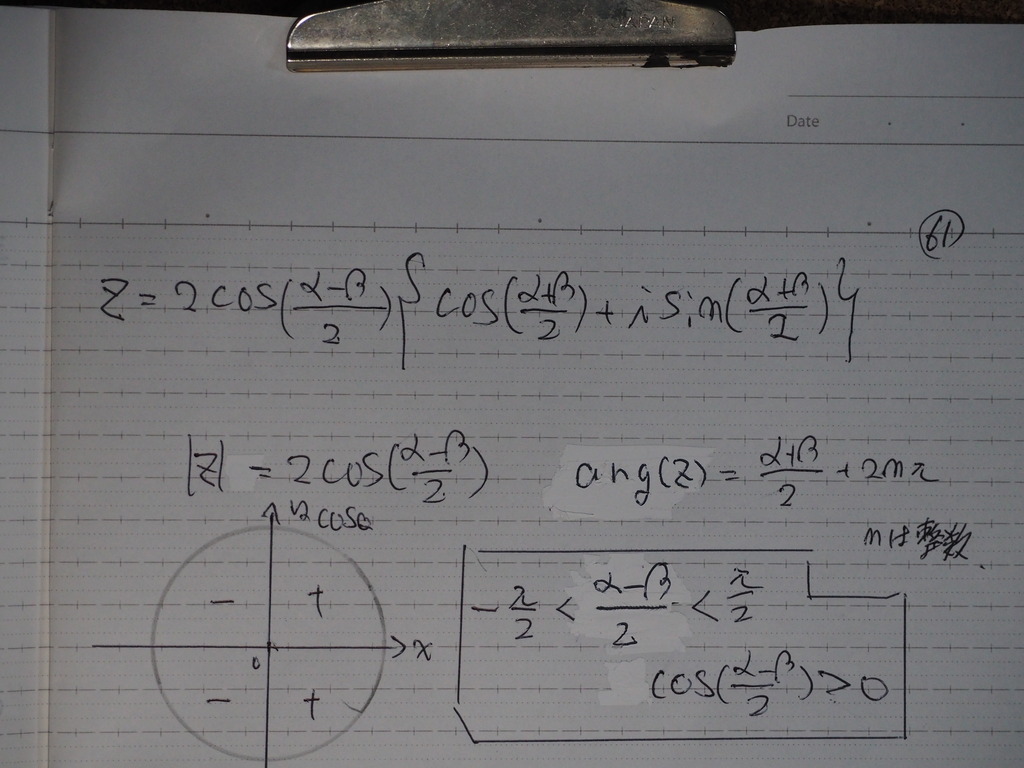 JAPAN
Date
61
Z = 2cos((α-β)/2){cos((α+β)/2) + i sin((α+β)/2)}
|Z| = 2cos((α-β)/2) arg(Z) = (α+β)/2 + 2nπ
nは整数
cosθ
- +
0 x
- +
-π/2 < (α-β)/2 < π/2
cos((α-β)/2) > 0